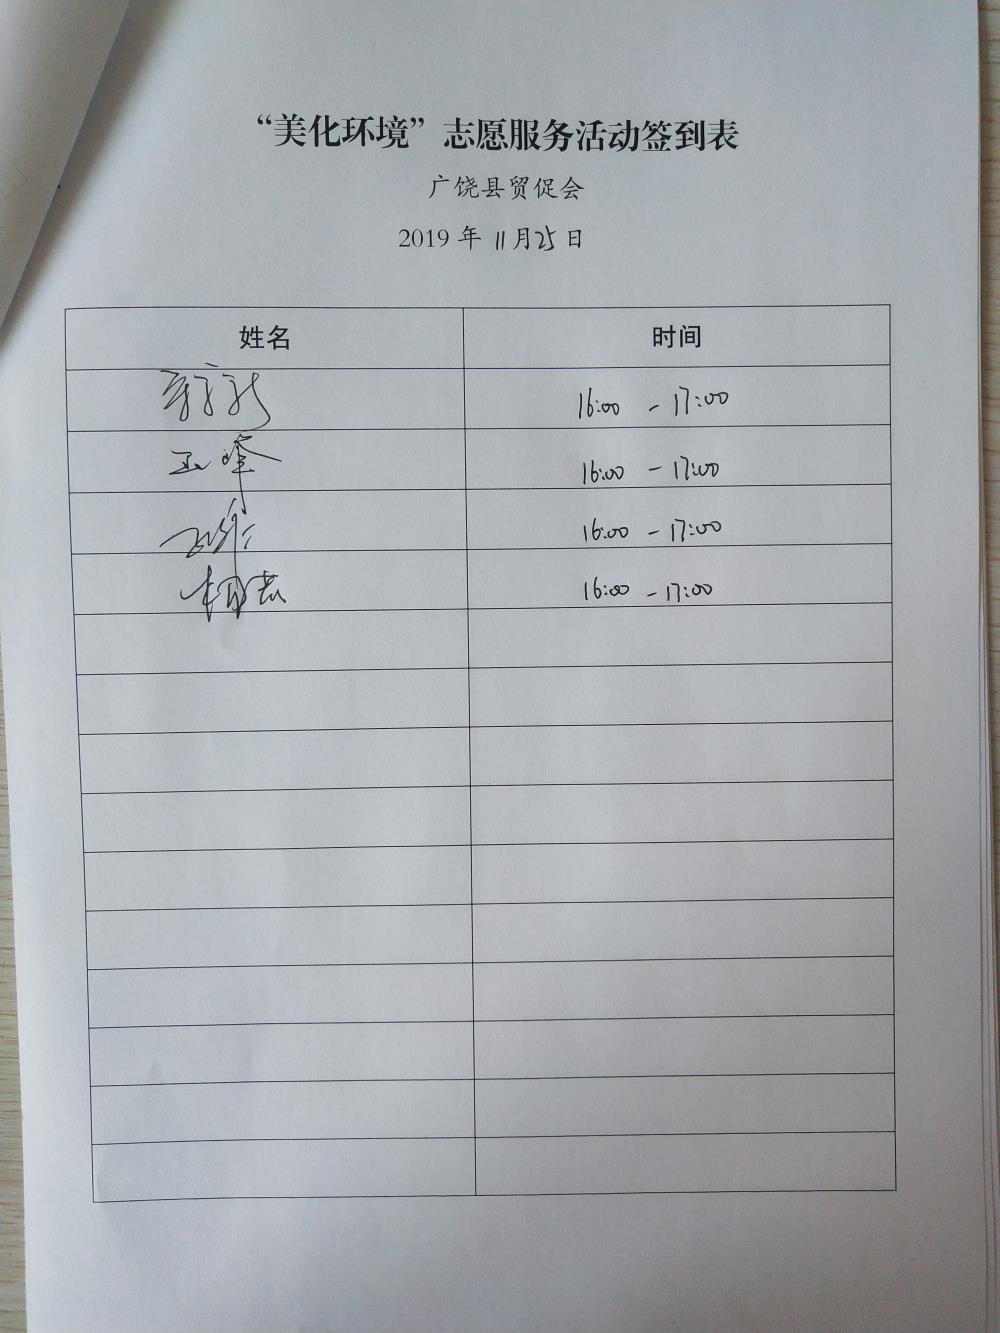 “美化环境”志愿服务活动签到表
广饶县贸促会
2019 年 11月25日
姓名 时间
16:00 - 17:00
16:00 - 17:00
16:00 - 17:00
16:00 - 17:00